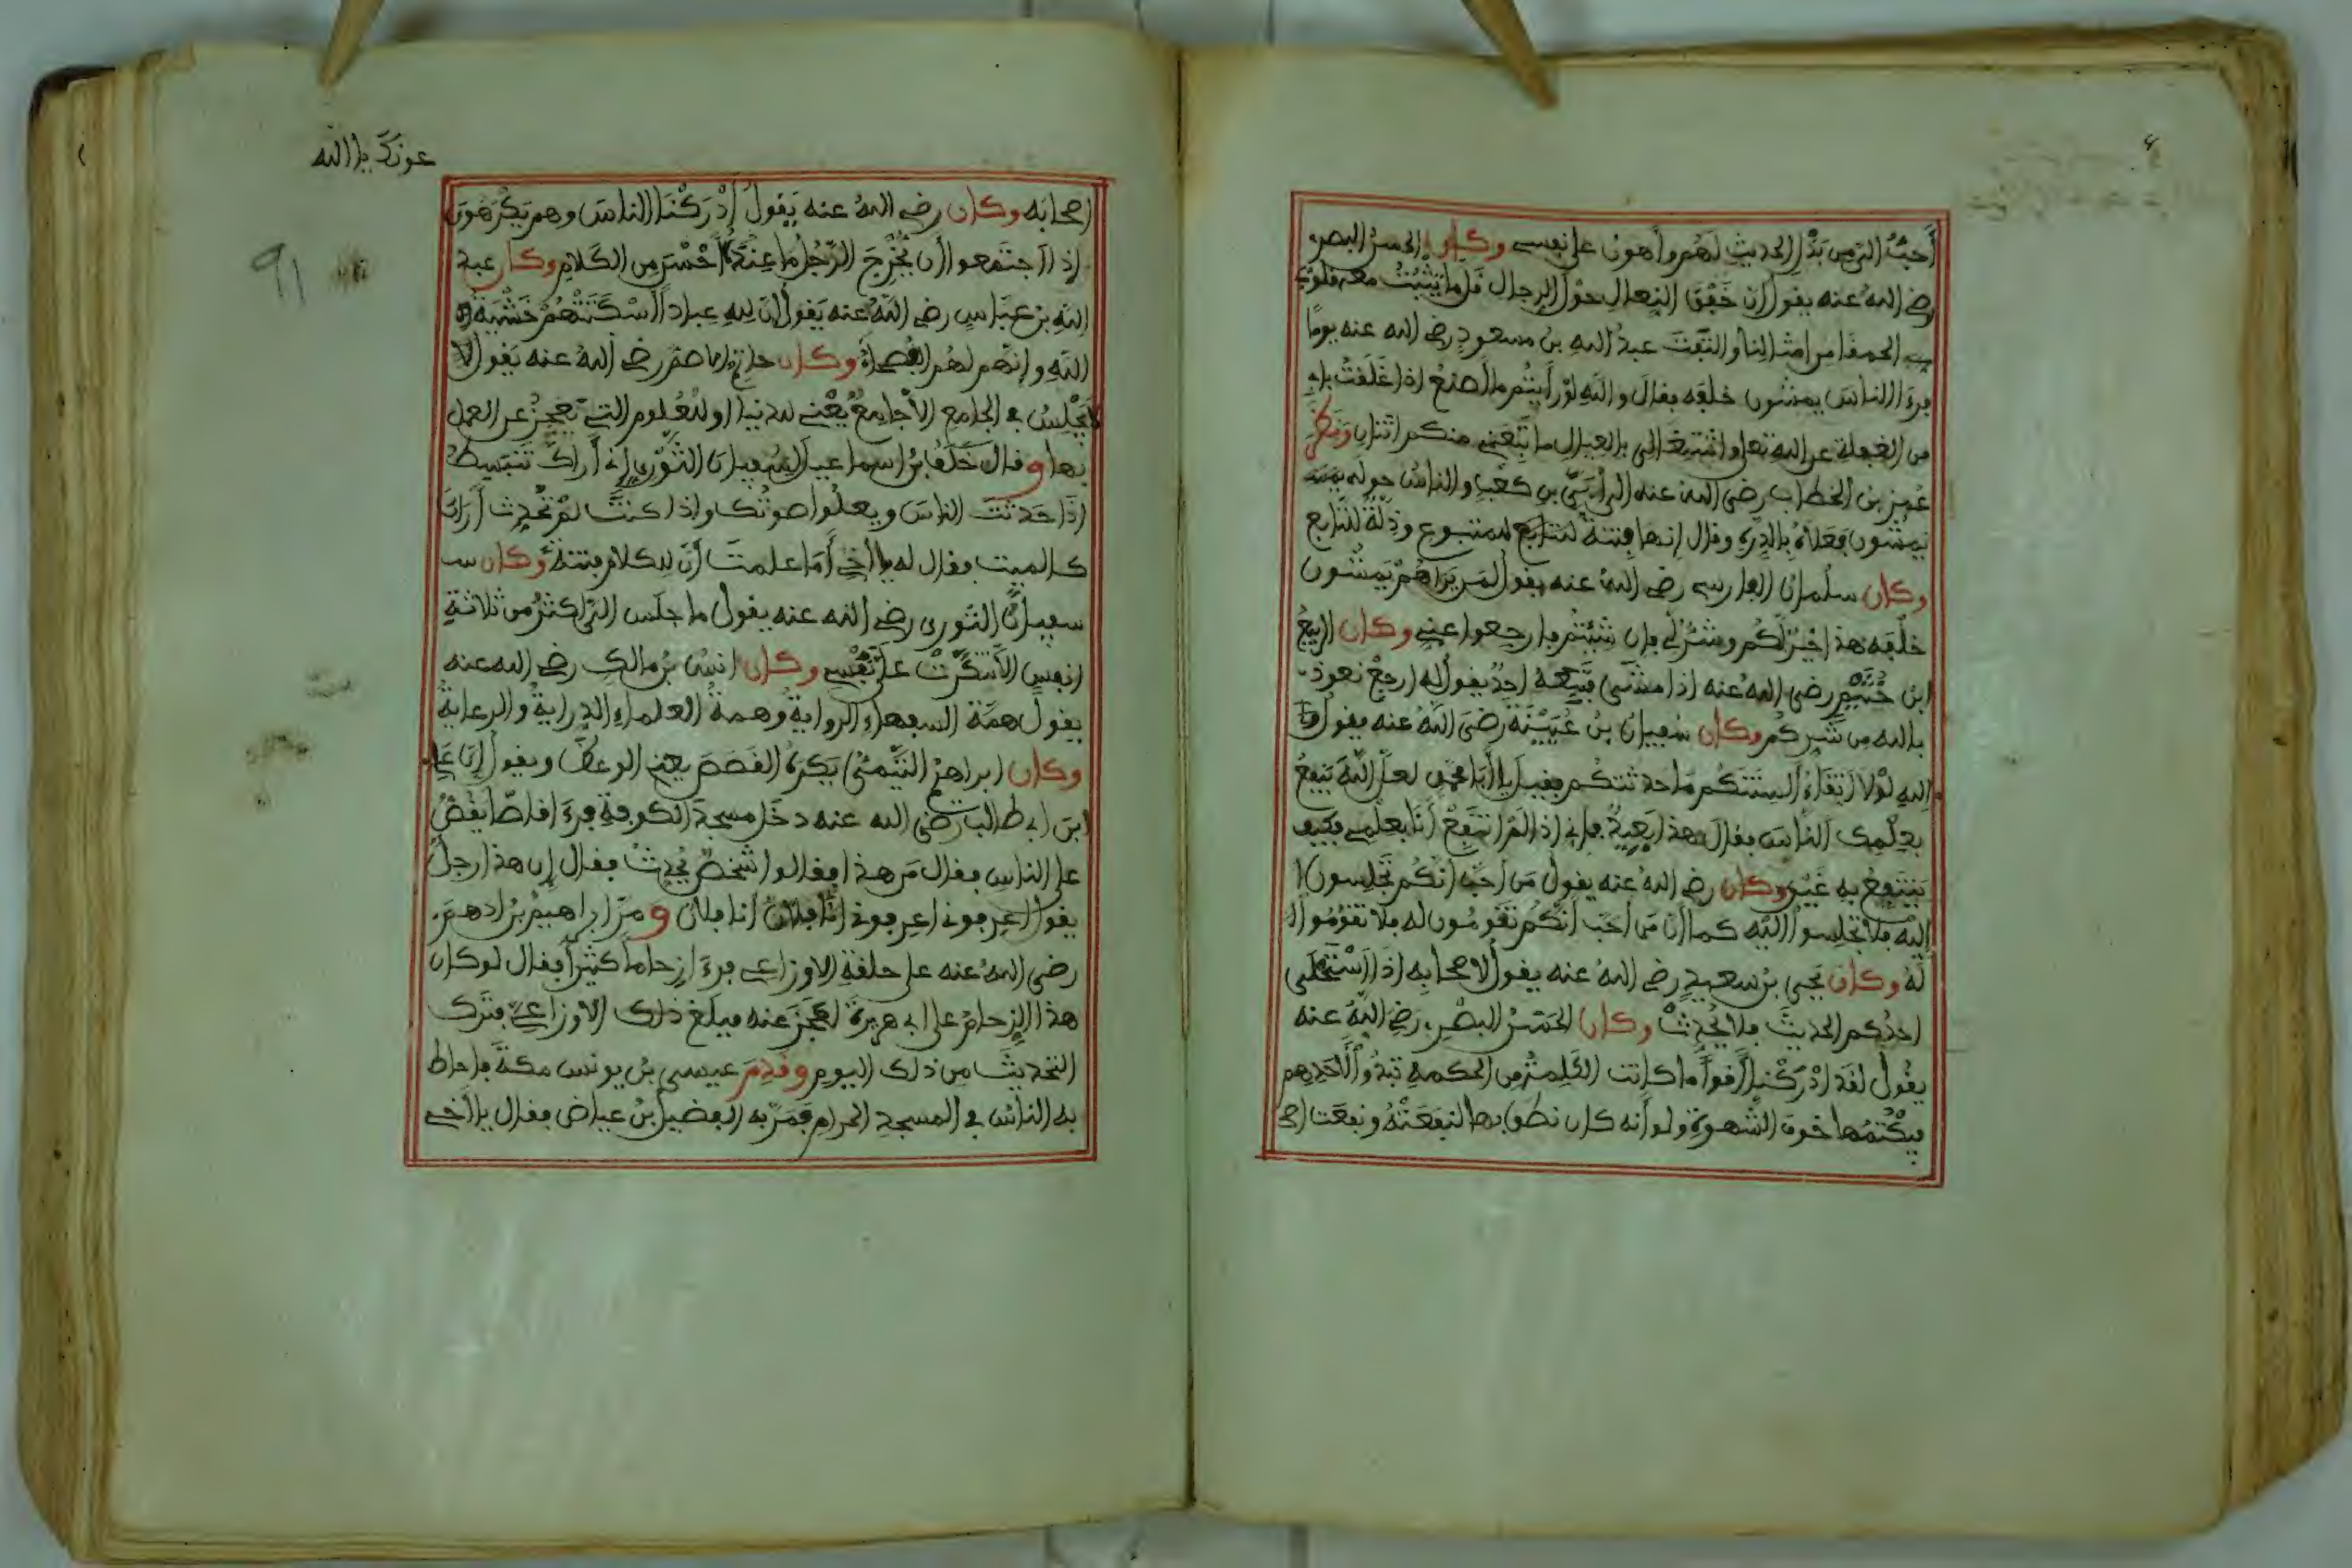 أَحَبُّ إليَّ من بَذْلِ الحديثِ لهُم وأهونُ على نفسي وكان الحسنُ البصري
رضي اللهُ عنه يقول إن خَفْقَ النِعال حوْلَ الرجال قَل ما يَثْبُتُ معه قلوب
الحمقا من امثالنا والتَفَتَ عبدُ اللهِ بن مسعودٍ رضي الله عنه يومًا
فرءَا الناسَ يمشون خلفه فقال واللهِ لوْ رأيتُم ما أصنعُ اذا غَلَقْتُ بابي
من الغفلة عن الله تعلى واشتغالي بالعيال ما تَبِعَني منكم اثنان ونظر
عُمر بن الخطاب رضي اللهُ عنه إلى أُبَيِّ بنِ كعْبٍ والناسُ حوله
يَمشون فعَلَاهُ بالدِرةِ وقال إنها فِتنةٌ للمتبوع وذِلَّةٌ للتابع
وكان سلمانُ الفارسي رضي اللهُ عنه يقول لمن يَراهمْ يَمشُون
خلْفَه هذا خيْرٌ لكُم وشَرٌّ لي فإن شِئْتُم فارجعوا عني وكان الربيعُ
ابن خُثَيْمٍ رضي اللهُ عنه إذا مشَى فتَبِعه احدٌ يقول له ارجعْ نعوذ
بالله من شَرِكُم وكان سُفيانُ بن عُيَيْنَةَ رضيَ اللهُ عنه يقول
اللهِ لوْلَا ٱتِّقَاءُ ألْسِنَتكُم ما حدثتكُم فقيل يا أبا محمدٍ لعلّ اللّهَ يَنفعُ
بعِلْمِك الناسَ فقال هذا بَعِيدٌ فإني إذا لمْ أنتفِعْ أنا بعلْمي فكيف
يَنتَفِعُ به غَيْري وكان رضي اللهُ عنه يقولُ مَن أحَبَّ أنكُم تَجْلِسون
إليْهِ فلا تَجْلِسوا إليْه كما أنّ مَن أحَبَّ أنّكُم تقومُون له فلا تقوُمُوا
لهُ وكان يَحيى بنُ سعيدٍ رضي اللهُ عنه يقولُ لاصحابِه إذا ٱسْتَحْلى
احدُكم الحديثَ فلا يُحدِثْ وكان الحَسَنُ البصْري رَضي اللهُ عنه
يقُول لقدْ ادْرَكْنا أقواماً كانت الكَلِمةُ من الحكمةِ تبدُو لأحدِهم
فيكْتُمُها خوفَ الشُهرةِ ولو أنه كان نطقَ بها لنفَعَتْهُ ونفعَت
عونَكَ يا الله
اصحابَه وكان رضي اللهُ عنه يَقولُ أدْرَكْنَا الناسَ وهم يَكْرَهُونَ
إذا ٱجتَمعوا أن يُخْرِجَ الرّجُل ما عِنْدَهُ أحْسَنَ من الكَلام وكان عبد
اللهِ بن عَبَّاسٍ رضي اللّهُ عنه يَقول إنّ للهِ عباداً أسْكَتَتْهُمْ خَشْيَةُ
اللّهِ وإنّهم لهُم الفُصَحاءُ وكان حاتم الاصم رضي اللهُ عنه يَقول لا
يَجْلِسُ في الجامع إلّا جامِعٌ يَعْني للدنيا او للعُلوم التي يَعْجِزُ عن العمل
بها وقال خَلَفُ بنُ اسماعيل لسُفيان الثَوْري إني أراكَ تَنبَسِطُ
إذا حَدثْتَ الناسَ ويعلُوا صوْتُك وإذا كنتَ لمْ تُحْدِث أراكَ
كالميت فقال له يا أخي أمَا علمتَ أنّ للكلام فتنةً وكان
سفيانُ الثوري رضي الله عنه يقول ما جلَس إليَّ اكثرُ من ثلاثةِ
انفسٍ إلّا أنْكَرْتُ عليَّ نَفْسي وكان انسُ بنُ مالك رضي الله عنه
يقول هِمَّة السفهاء الروايةُ وهمةُ العلماء الدِرايةُ والرعايةُ
وكان إبراهيمُ التيْميُّ يَكرَهُ القَصَصَ يعني الوعظَ ويقول إن عَلي
ابن ابي طالب رضي الله عنه دخَل مسجدَ الكوفةِ فرءَا قاصّا يَقُصُّ
على الناسِ فقال مَن هذا فقالوا شخصٌ يُحدِثُ فقال إن هذا رجلٌ
يقول اعرفوني اعرفوني أنا فلان انا فلان ومرّ إبراهيمُ بنُ ادهمَ
رضي اللهُ عنه على حلقةِ الاوزاعي فرءَا زحاماً كثيراً فقال لو كان
هذا الزِحامُ على ابي هريرةَ لعَجَزَ عنه فبلَغ ذلك الأوزاعيّ فتركَ
التحديثَ من ذلك اليوم وقدِمَ عيسى بنُ يونس مكةَ فاحاط
به الناسُ في المسجدِ الحرام فمَرّ به الفضيلُ بنُ عياض فقال يا أخي